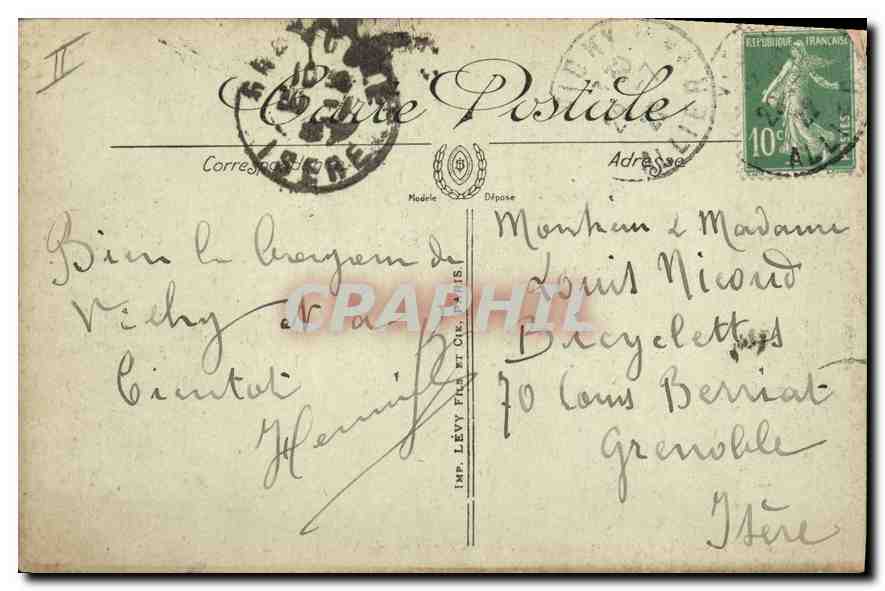 II
Carte Postale
Correspondance
Adresse
Modèle Déposé
RÉPUBLIQUE FRANÇAISE
10c
POSTES
VICHY
ALLIER
ALLIER
ISÈRE
Bien le bonjour de
Vichy et à
bientôt
Monsieur & Madame
Louis Nicoud
Bicyclettes
70 Cours Berriat
Grenoble
Isère
IMP. LÉVY FILS ET CIE, PARIS.
CRAPHIL